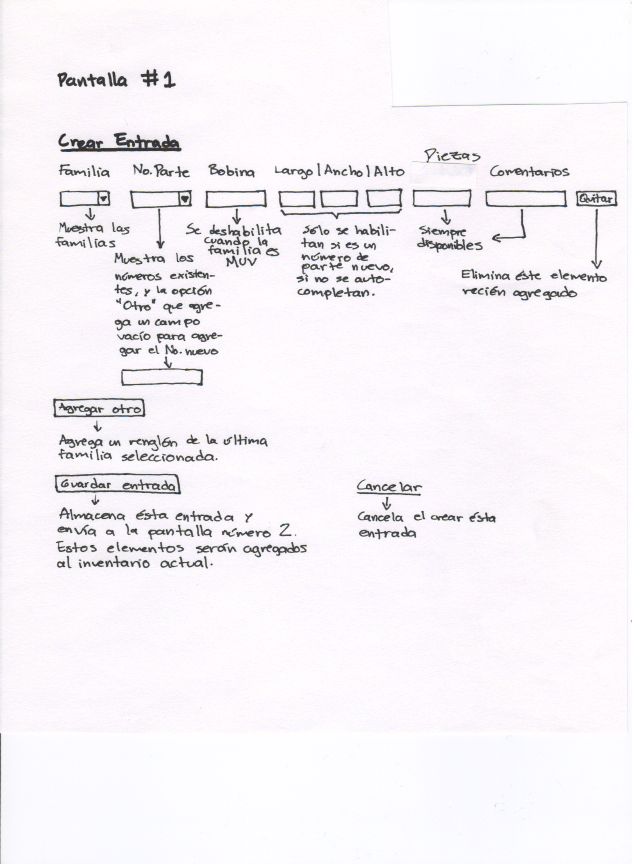 Pantalla #1
Crear Entrada
Familia No. Parte Bobina Largo | Ancho | Alto Piezas Comentarios
Quitar
Muestra las
familias.
Muestra los
números existen-
tes, y la opción
"Otro" que agre-
ga un campo
vacío para agre-
gar el No. nuevo
Se deshabilita
cuando la
familia es
MUV
Sólo se habili-
tan si es un
número de
parte nuevo,
si no se auto-
completan.
Siempre
disponibles
Elimina éste elemento
recién agregado
Agregar otro
Agrega un renglón de la última
familia seleccionada.
Guardar entrada
Almacena ésta entrada y
envía a la pantalla número 2.
Estos elementos serán agregados
al inventario actual.
Cancelar
Cancela el crear ésta
entrada